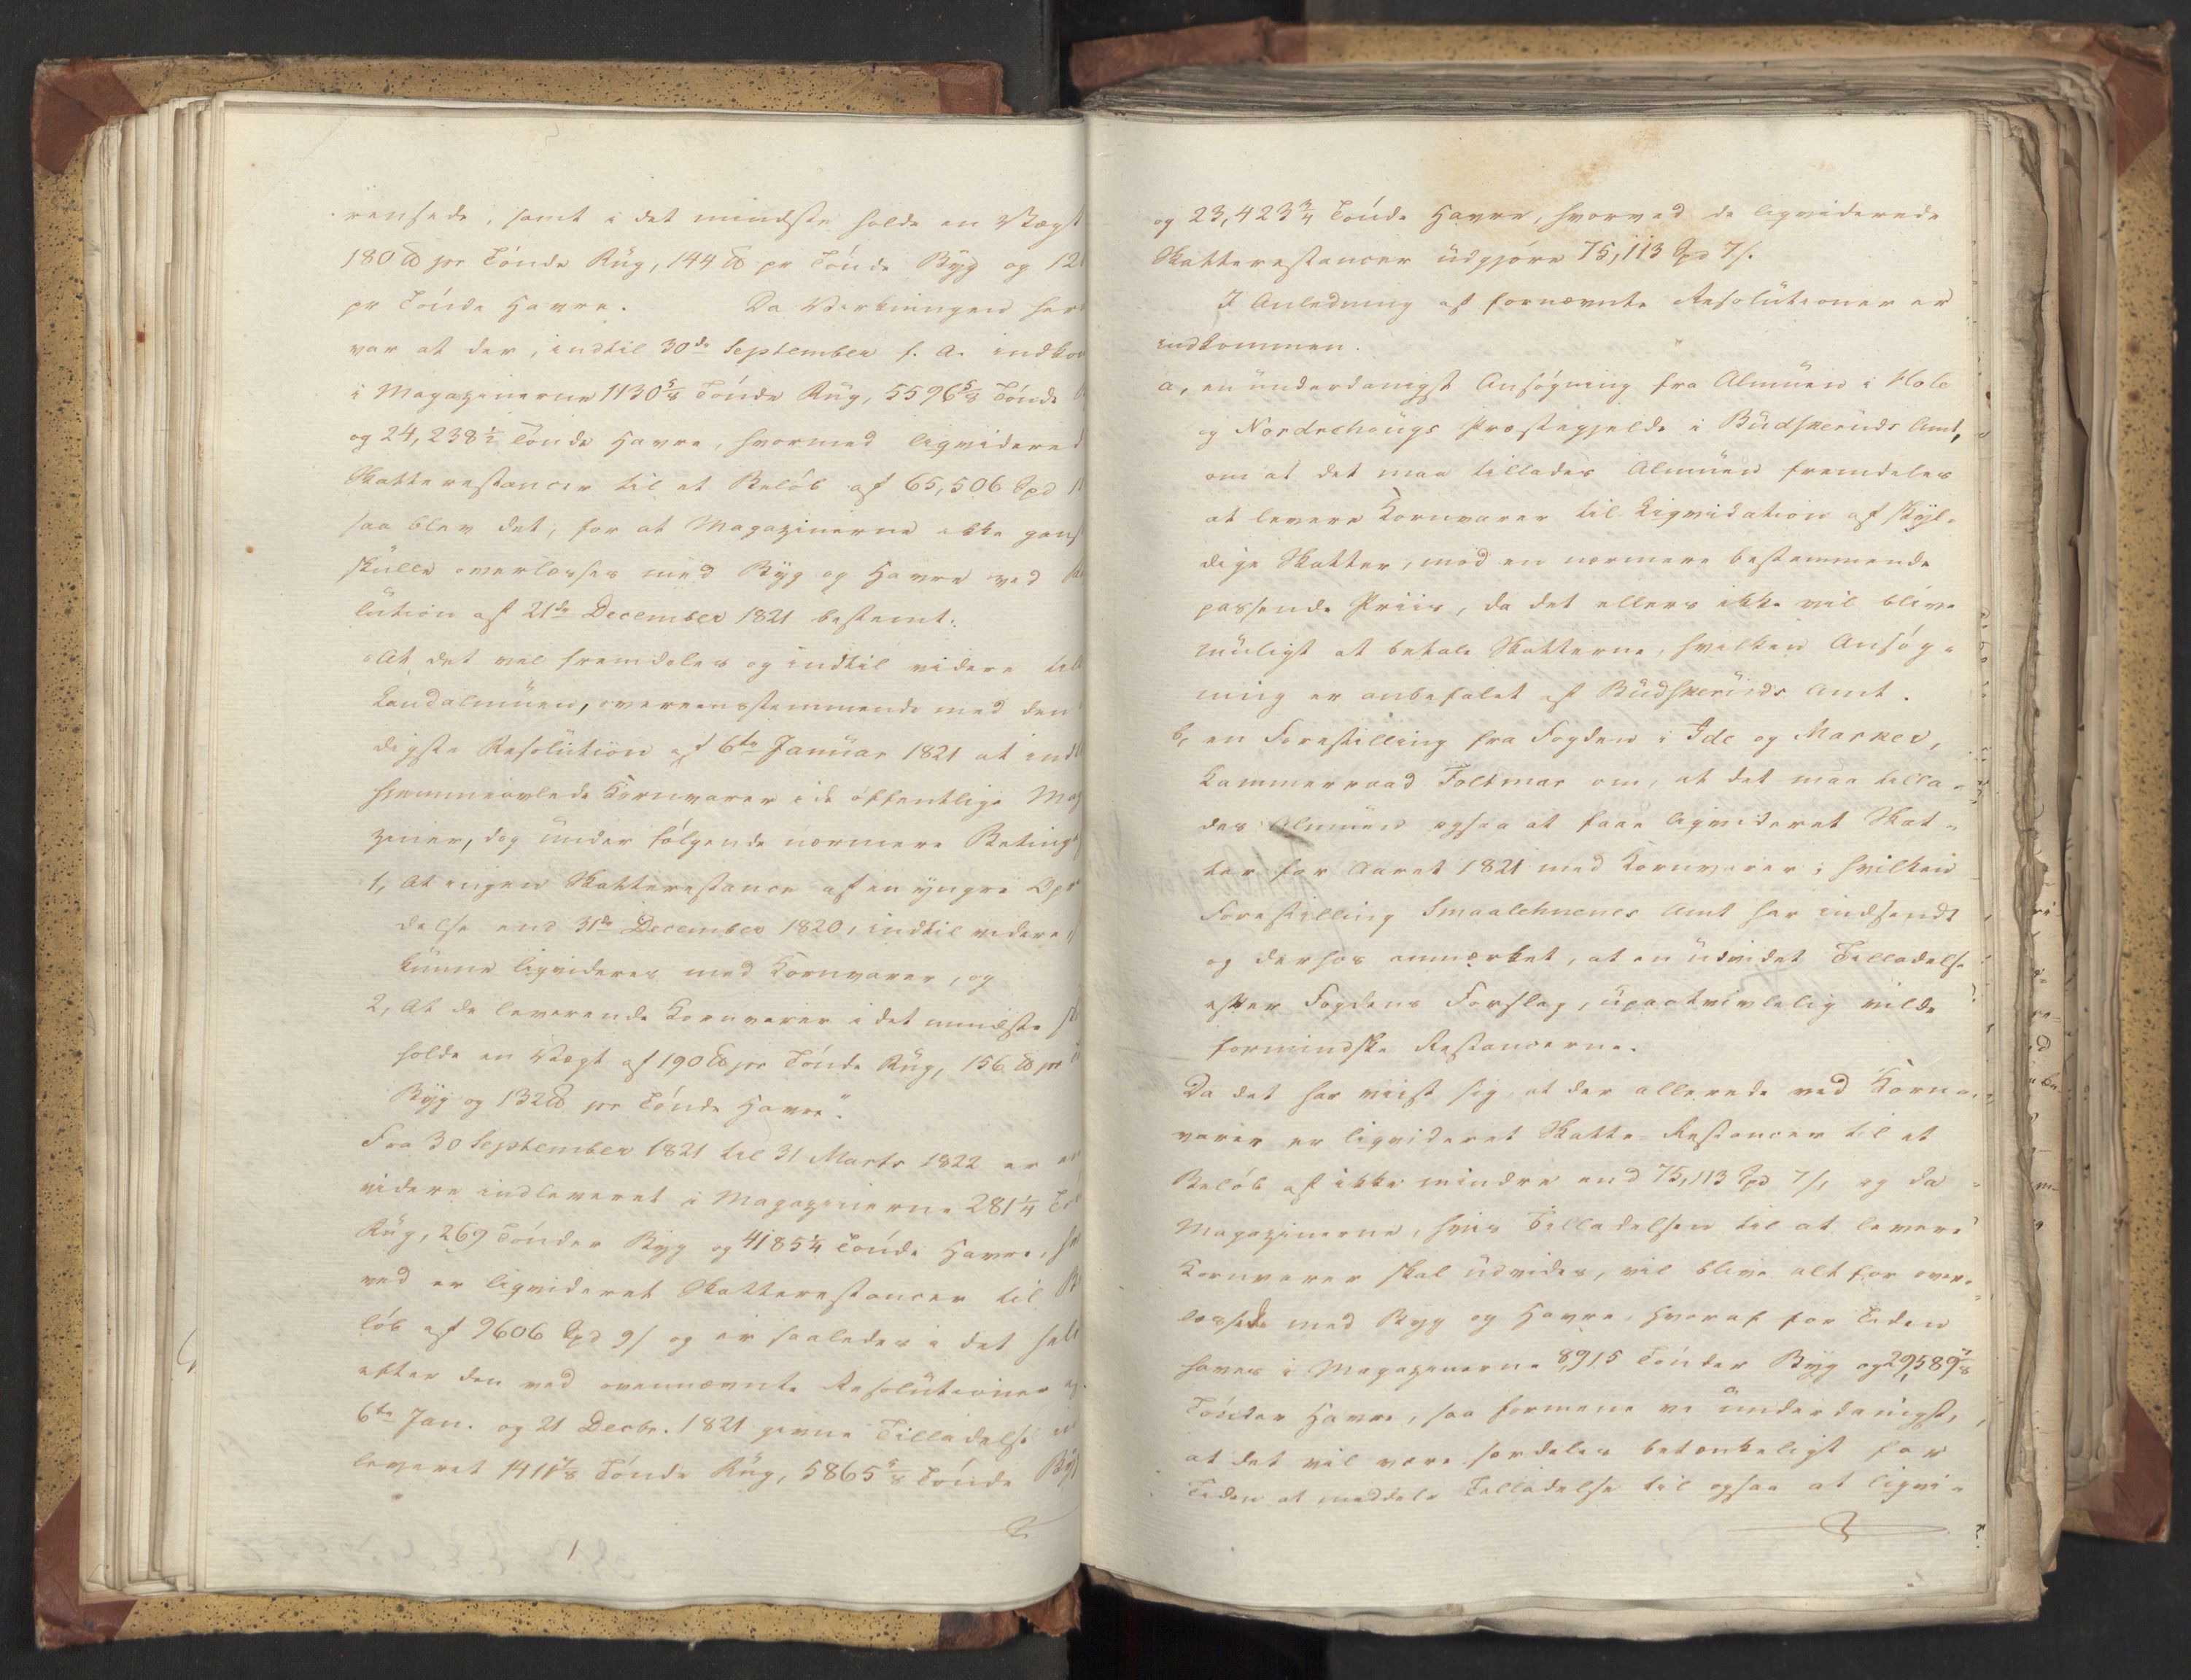 rensede, samt i det mindste holde en Vægt
180 ℔ pr Tønde Rug, 144 ℔ pr Tønde Byg og 12
pr Tønde Havre. Da Virkningen her
var at der, indtil 30de September f. A. indkom
i Magazinerne 1130 5/8 Tønde Rug, 5596 5/8 Tønde
og 24,238 1/2 Tønde Havre, hvormed liqvidered
Skatterestancer til et Beløb af 65,506 Spd
saa blev det, for at Magazinerne ikke gans
skulle overlæsses med Byg og Havre ved
lution af 21de December 1821 bestemt:
"At det vel fremdeles og indtil videre till
Landalmuen, overeensstemmende med den
digste Resolution af 6te Januar 1821 at indl
hjemmeavlede Kornvarer i de offentlige Mag
ziner, dog under følgende nærmere Beting
1, At ingen Skatterestance af en yngre Op
delse end 31de December 1820, indtil videre
kunne liqvideres med Kornvarer, og
2, At de leverende Kornvarer i det mindste
holde en Vægt af 190 ℔ pr Tønde Rug, 156 ℔ pr
Byg og 132 ℔ pr Tønde Havre".
Fra 30 September 1821 til 31 Marts 1822 er
videre indleveret i Magazinerne 281 1/4
Rug, 269 Tønder Byg og 4185 1/4 Tønde Havre,
ved er liqvideret Skatterestancer til
løb af 9606 Spd 9 s og er saaledes i det hele
efter den ved ovennævnte Resolutioner
6te Jan. og 21 Decbr. 1821 givne Tilladelse
leveret 1411 7/8 Tønde Rug, 5865 5/8 Tønde Byg
og 23,423 3/4 Tønde Havre, hvorved de liqviderede
Skatterestancer udgjøre 75,113 Spd 7 s.
I Anledning af fornævnte Resolutioner er
indkommen.
a, en underdanigst Ansøgning fra Almuen i Hole
og Nordrehougs Præstegjelde i Budskeruds Amt,
om at det maa tillades Almuen fremdeles
at levere Kornvarer til Liqvidation af skyl-
dige Skatter, mod en nærmere bestemmende
passende Priis, da det ellers ikke vil blive
muligt at betale Skatterne, hvilken Ansøg-
ning er anbefalet af Budskeruds Amt.
b, en Forestilling fra Fogden i Ide og Marker,
Kammerraad Foltmar om, at det maa tilla-
des Almuen ogsaa at faae liqvideret Skat-
ter for Aaret 1821 med Kornvarer; hvilken
Forestilling Smaalehnenes Amt har indsendt
og derhos anmærket, at en udvidet Tilladelse
efter Fogdens Forslag, upaatvivlelig vilde
formindske Restancerne.
Da det har viist sig, at der allerede ved Korn-
varer er liqvideret Skatte-Restancer til et
Beløb af ikke mindre end 75,113 Spd 7 s, og da
Magazinerne, hvis Tilladelsen til at levere
Kornvarer skal udvides, vil blive alt for over-
læssede med Byg og Havre, hvoraf for Tiden
haves i Magazinerne 8,915 Tønder Byg og 29,589 7/8
Tønder Havre, saa formene vi underdanigst,
at det vil være særdeles betænkeligt for
Tiden at meddele Tilladelse til ogsaa at liqvi-